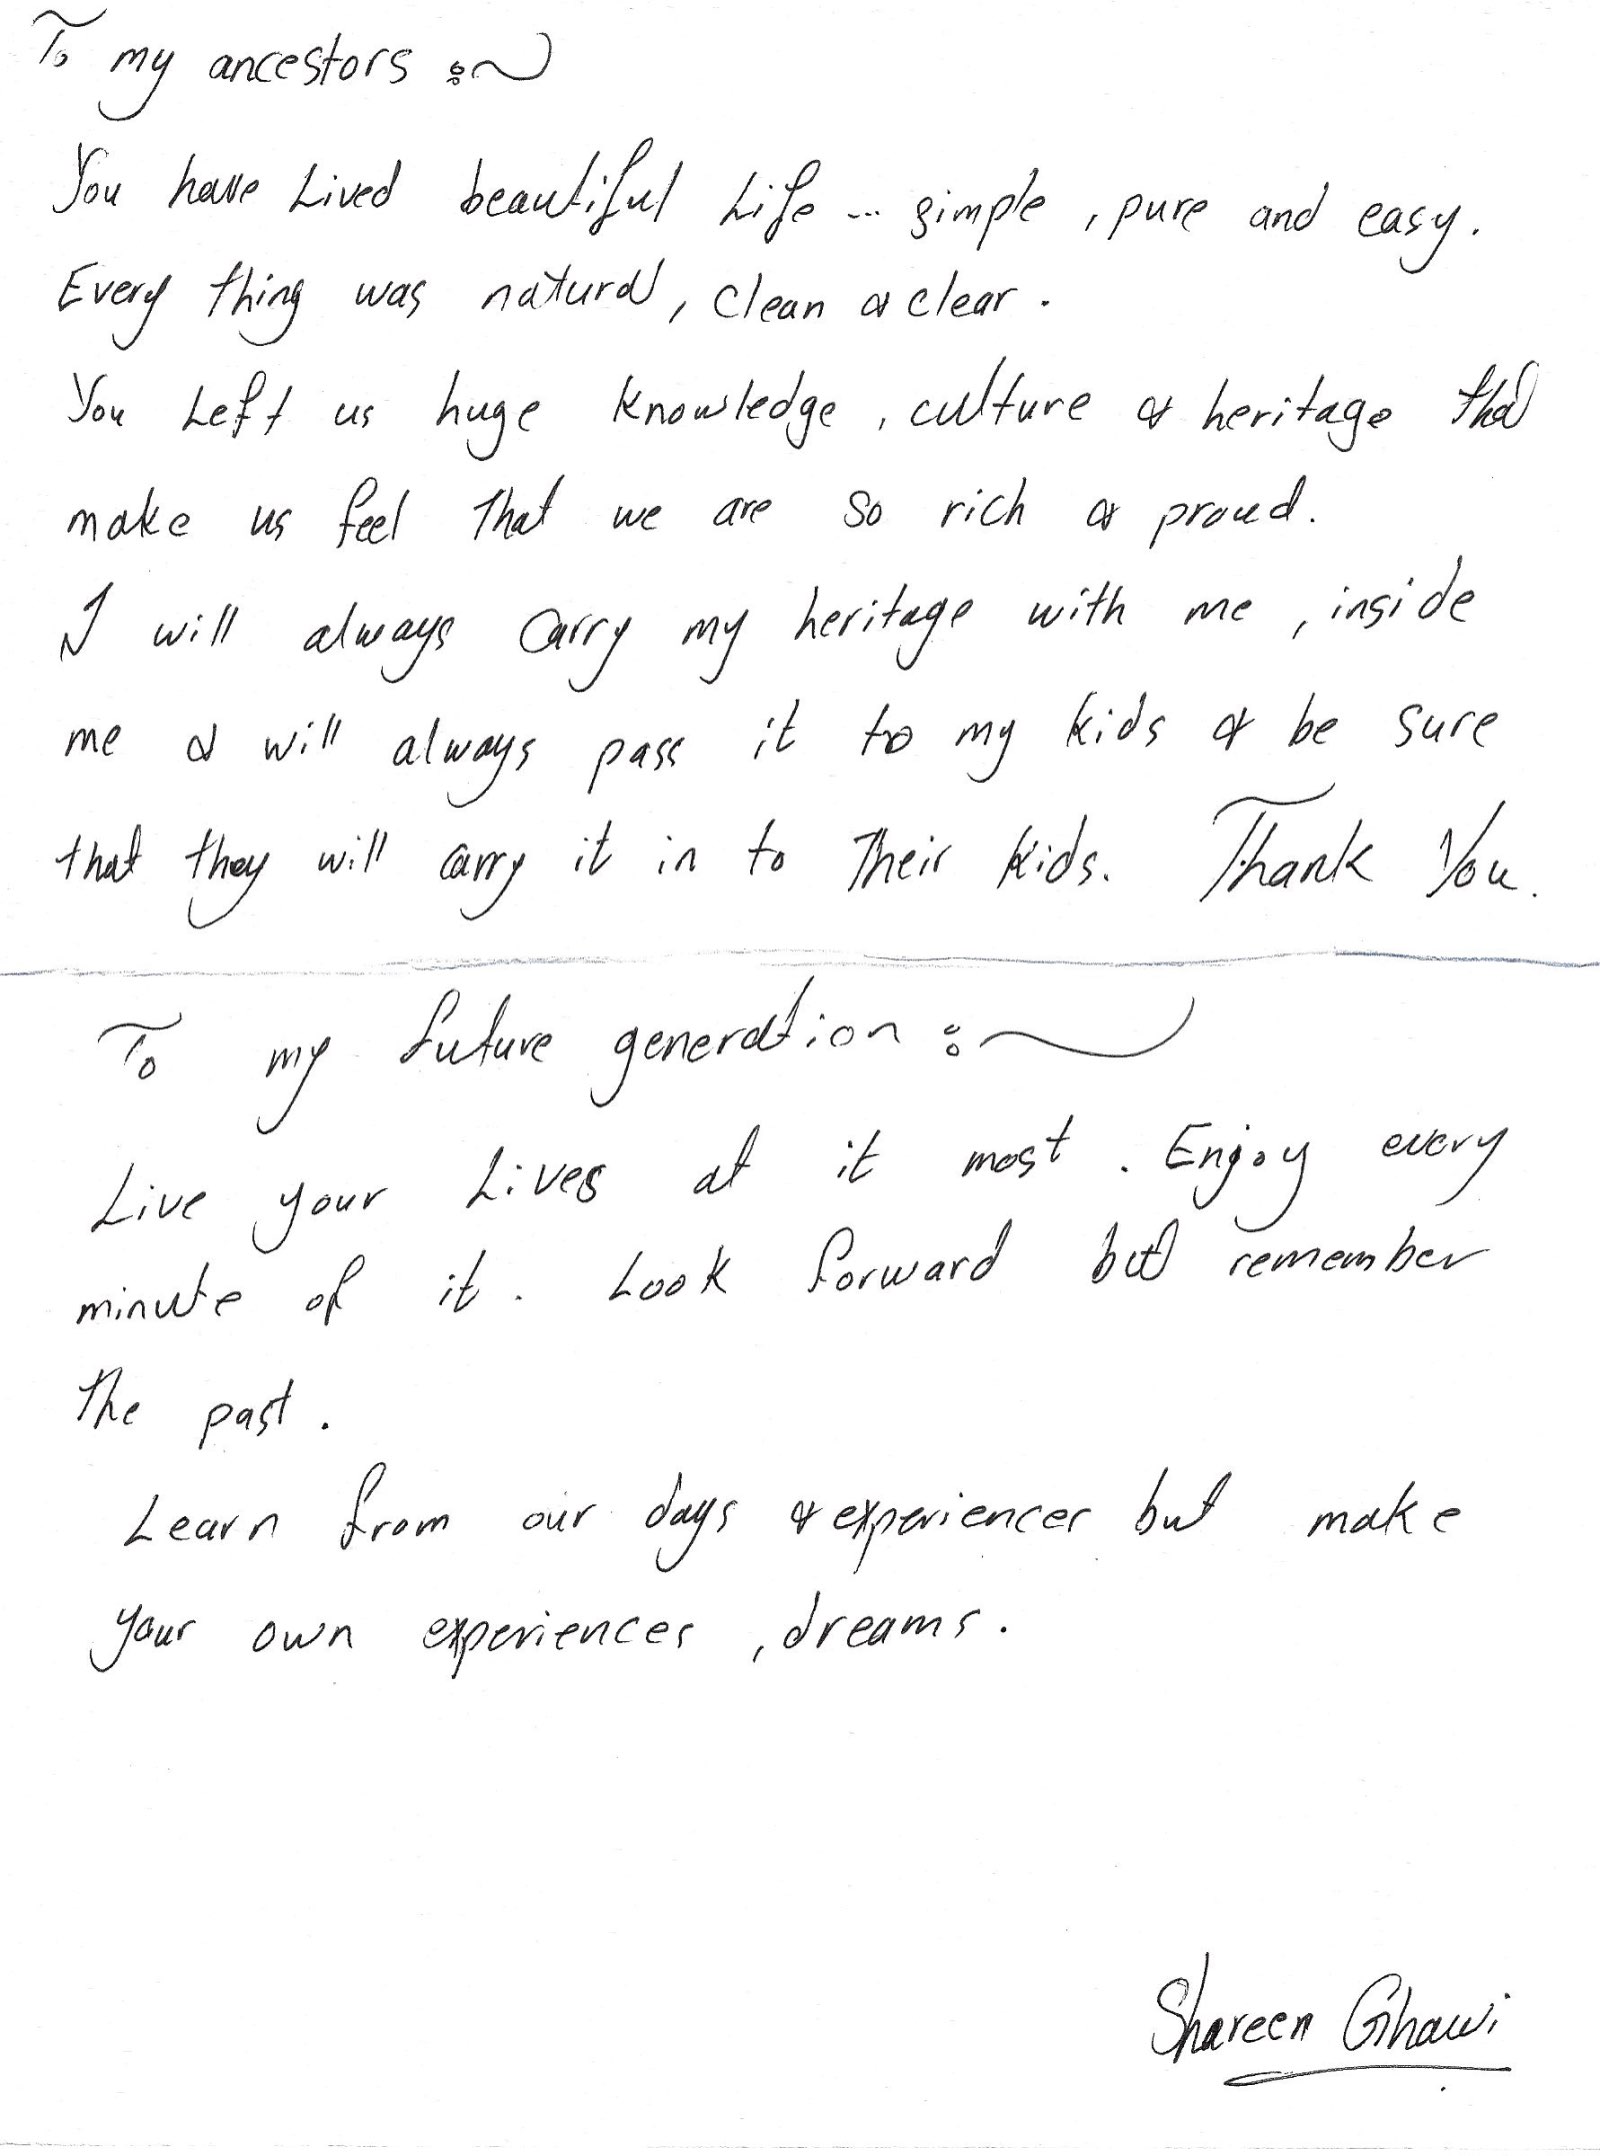 To my ancestors :~
You have Lived beautiful Life ... simple , pure and easy.
Every thing was natural, clean & clear.
You Left us huge knowledge , culture & heritage that
make us feel that we are so rich & proud.
I will always carry my heritage with me , inside
me & will always pass it to my kids & be sure
that they will carry it in to Their kids. Thank You.
To my future generation :~
Live your Lives at it most . Enjoy every
minute of it . Look forward but remember
The past .
Learn from our days & experiences but make
your own experiences , dreams .
Shareen Ghawi